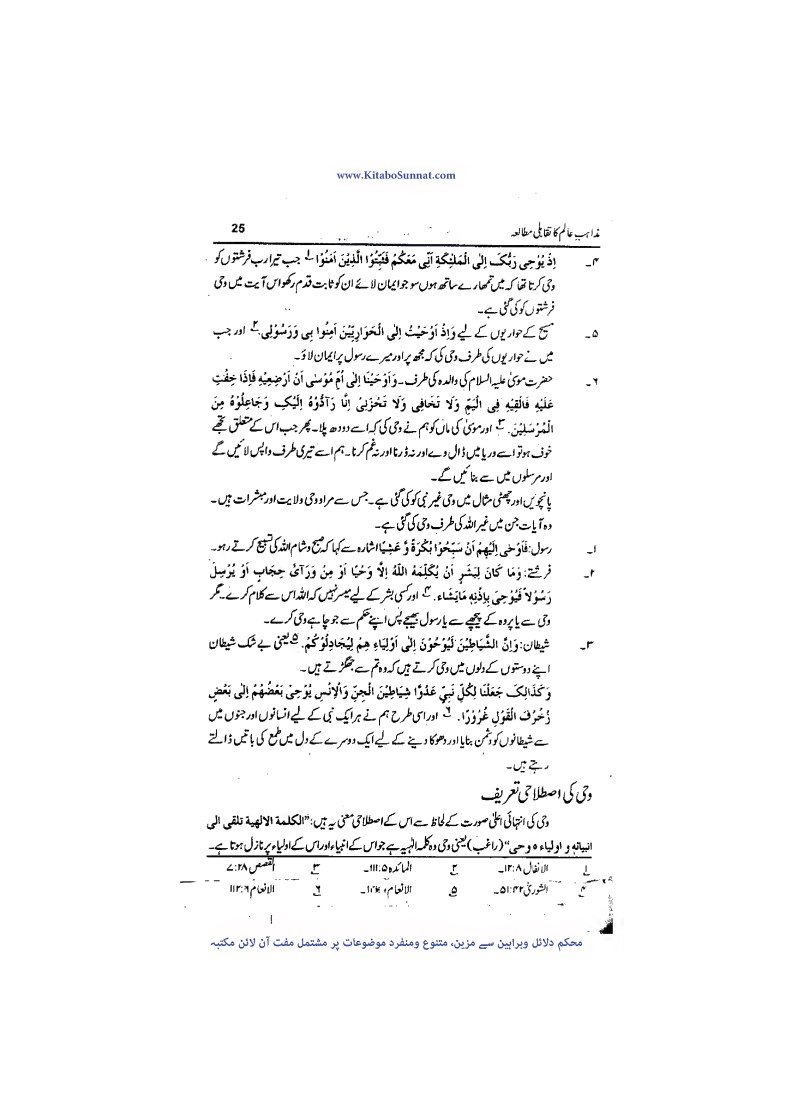 www.KitaboSunnat.com
مذاہب عالم کا تقابلی مطالعہ 25
۴۔ اِذْ يُوْحِى رَبُّکَ اِلَى الْمَلٰئِكَةِ اَنِّى مَعَكُمْ فَثَبِّتُوْا الَّذِيْنَ اٰمَنُوْا ۱؎ جب تیرا رب فرشتوں کو
وحی کرتا تھا کہ میں تمھارے ساتھ ہوں سو جو ایمان لائے ان کو ثابت قدم رکھو اس آیت میں وحی
فرشتوں کو کی گئی ہے۔
۵۔ مسیح کے حواریوں کے لیے وَاِذْ اَوْحَيْتُ اِلَى الْحَوَارِيّيْنَ اٰمِنُوا بِى وَرَسُوْلِى۔ ۲؎ اور جب
میں نے حواریوں کی طرف وحی کی کہ مجھ پر اور میرے رسول پر ایمان لاؤ۔
۶۔ حضرت موسیٰ علیہ السلام کی والدہ کی طرف۔ وَاَوْحَيْنَا اِلٰى اُمِّ مُوْسٰى اَنْ اَرْضِعِيْهِ فَاِذَا خِفْتِ
عَلَيْهِ فَالْقِيْهِ فِى الْيَمِّ وَلَا تَخَافِى وَلَا تَحْزَنِىْ اِنَّا رَآدُّوْهُ اِلَيْکِ وَجَاعِلُوْهُ مِنَ
الْمُرْسَلِيْنَ۔ ۳؎ اور موسیٰ کی ماں کو ہم نے وحی کی کہ اسے دودھ پلا۔ پھر جب اس کے متعلق تجھے
خوف ہو تو اسے دریا میں ڈال دے اور نہ ڈرنا اور نہ غم کرنا۔ ہم اسے تیری طرف واپس لائیں گے
اور مرسلوں میں سے بنائیں گے۔
پانچویں اور چھٹی مثال میں وحی غیر نبی کو کی گئی ہے۔ جس سے مراد وحی ولایت اور مبشرات ہیں۔
وہ آیات جن میں غیر اللہ کی طرف وحی کی گئی ہے۔
۱۔ رسول: فَاَوْحٰى اِلَيْهِمْ اَنْ سَبِّحُوْا بُكْرَةً وَّ عَشِيًّا اشارہ سے کہا کہ صبح و شام اللہ کی تسبیح کرتے رہو۔
۲۔ فرشتے: وَمَا كَانَ لِبَشَرٍ اَنْ يُكَلِّمَهُ اللهُ اِلَّا وَحْيًا اَوْ مِنْ وَرَآئِ حِجَابٍ اَوْ يُرْسِلَ
رَسُوْلاً فَيُوْحِىَ بِاِذْنِهِ مَايَشَاء۔ ۴؎ اور کسی بشر کے لیے میسر نہیں کہ اللہ اس سے کلام کرے۔ مگر
وحی سے یا پردہ کے پیچھے سے یا رسول بھیجے پس اپنے حکم سے جو چاہے وحی کرے۔
۳۔ شیطان: وَاِنَّ الشَّيَاطِيْنَ لَيُوْحُوْنَ اِلٰى اَوْلِيَاءِ هِمْ لِيُجَادِلُوْكُمْ۔ ۵؎ یعنی بے شک شیطان
اپنے دوستوں کے دلوں میں وحی کرتے ہیں کہ وہ تم سے جھگڑتے ہیں۔
وَكَذَالِكَ جَعَلْنَا لِكُلِّ نَبِيٍّ عَدُوًّا شِيَاطِيْنَ الْجِنِّ وَالْاِنْسِ يُوْحِىْ بَعْضُهُمْ اِلٰى بَعْضٍ
زُخْرُفَ الْقَوْلِ غُرُوْرًا۔ ۶؎ اور اسی طرح ہم نے ہر ایک نبی کے لیے انسانوں اور جنوں میں
سے شیطانوں کو دشمن بنایا اور دھوکا دینے کے لیے ایک دوسرے کے دل میں طمع کی باتیں ڈالتے
رہتے ہیں۔
وحی کی اصطلاحی تعریف
وحی کی انتہائی اعلیٰ صورت کے لحاظ سے اس کے اصطلاحی معنی یہ ہیں: "الکلمة الالھیة تلقی الی
انبیائه و اولیاء ه وحی" (راغب) یعنی وحی وہ کلمہ الٰہیہ ہے جو اس کے انبیاء اور اس کے اولیاء پر نازل ہوتا ہے۔
۱؎ الانفال ۸:۱۲۔ ۲؎ المائدہ ۵:۱۱۱۔ ۳؎ القصص ۲۸:۷
۴؎ الشوریٰ ۴۲:۵۱۔ ۵؎ الانعام ۶؎ الانعام ۶:۱۱۲
محکم دلائل وبراہین سے مزین، متنوع ومنفرد موضوعات پر مشتمل مفت آن لائن مکتبہ